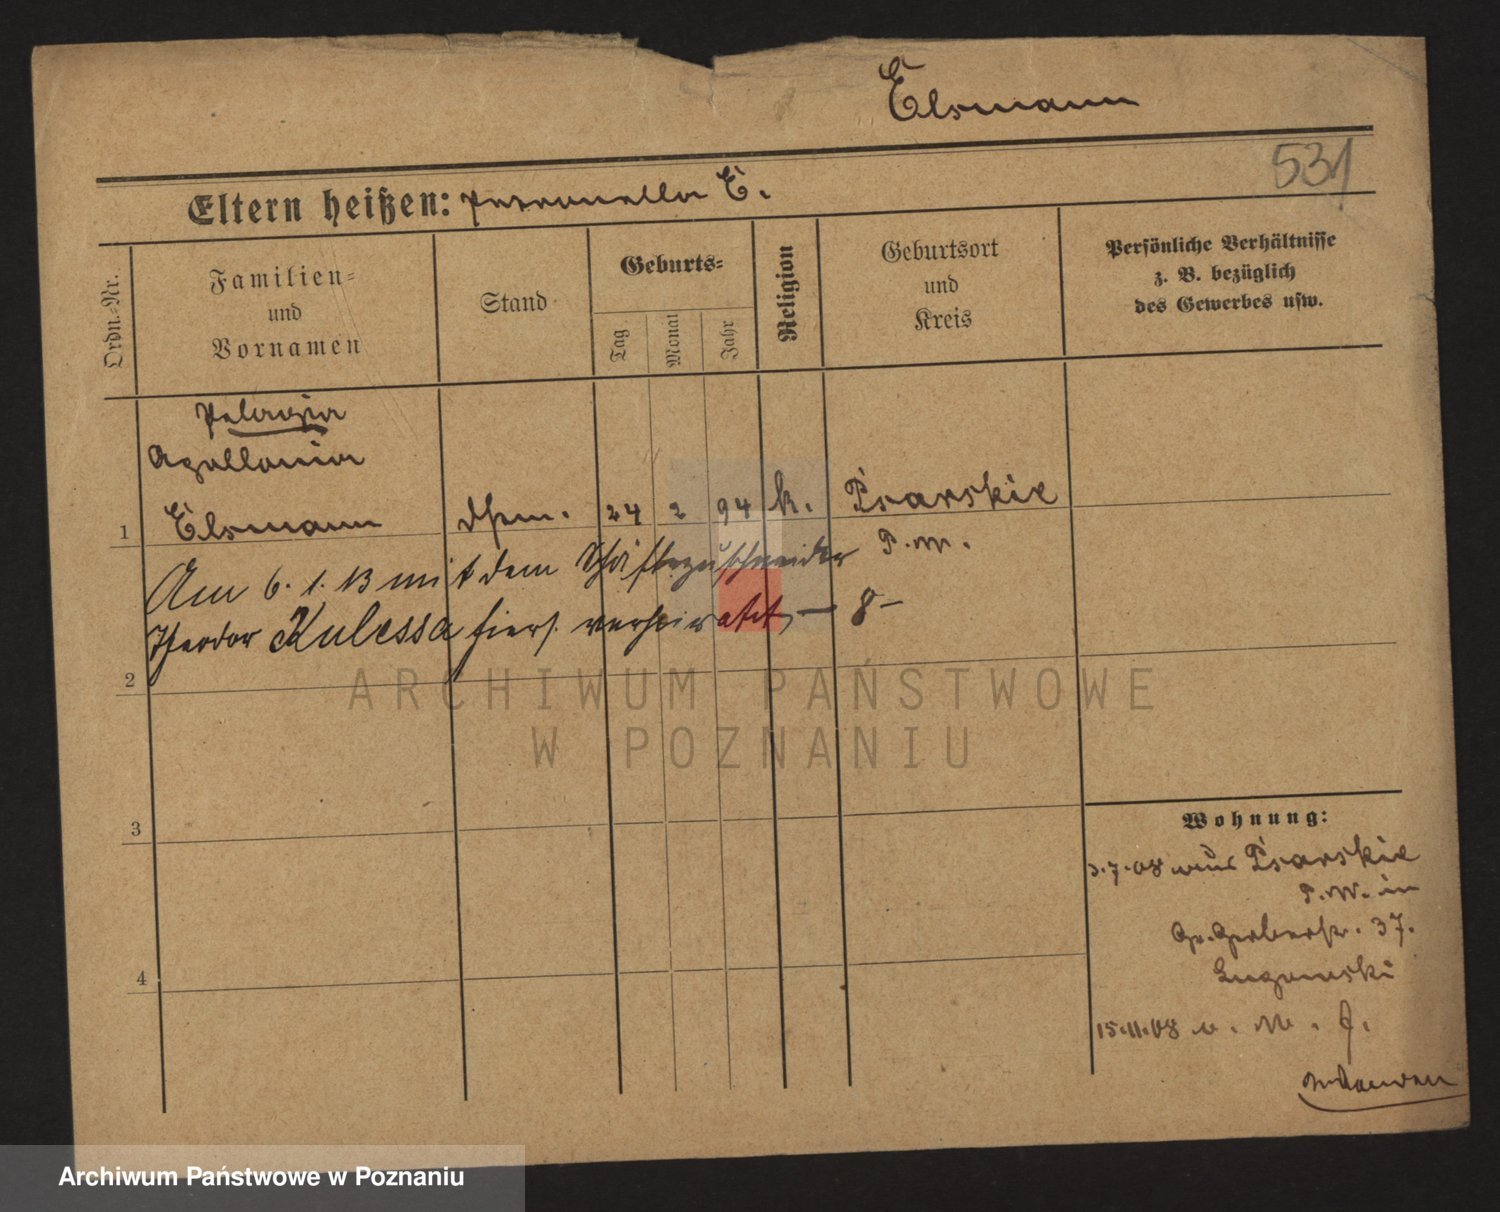 Elsmann
531
Eltern heißen: Petronella E.
Ordn.-Nr.
Familien-
und
Vornamen
Stand
Geburts-
Tag
Monat
Jahr
Religion
Geburtsort
und
Kreis
Persönliche Verhältnisse
z. B. bezüglich
des Gewerbes usw.
Pelagia
Apollonia
1 Elsmann 24 2 94 k. Psarskie
P. W.
Am 6. 1. 13 mit dem Schäftezuschneider
Theodor Kulessa hiers. verheiratet, — 8 —
2
3
4
Wohnung:
3.7.08 aus Psarskie
P. W. in
Gr. Gerberstr. 37.
15.11.08
ARCHIWUM PAŃSTWOWE
W POZNANIU
Archiwum Państwowe w Poznaniu